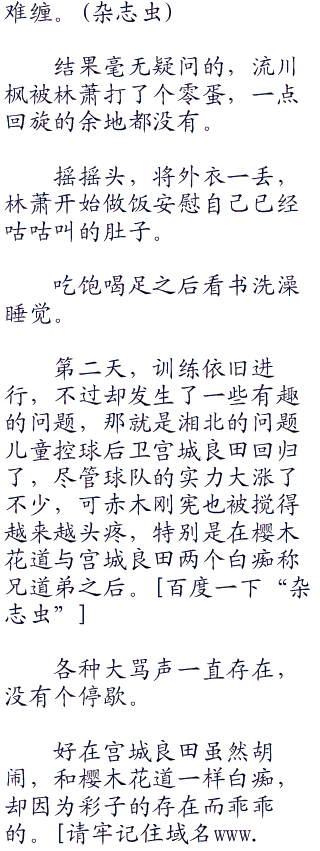 难缠。(杂志虫)
结果毫无疑问的，流川
枫被林萧打了个零蛋，一点
回旋的余地都没有。
摇摇头，将外衣一丢，
林萧开始做饭安慰自己已经
咕咕叫的肚子。
吃饱喝足之后看书洗澡
睡觉。
第二天，训练依旧进
行，不过却发生了一些有趣
的问题，那就是湘北的问题
儿童控球后卫宫城良田回归
了，尽管球队的实力大涨了
不少，可赤木刚宪也被搅得
越来越头疼，特别是在樱木
花道与宫城良田两个白痴称
兄道弟之后。[百度一下“杂
志虫”]
各种大骂声一直存在，
没有个停歇。
好在宫城良田虽然胡
闹，和樱木花道一样白痴，
却因为彩子的存在而乖乖
的。[请牢记住域名www.